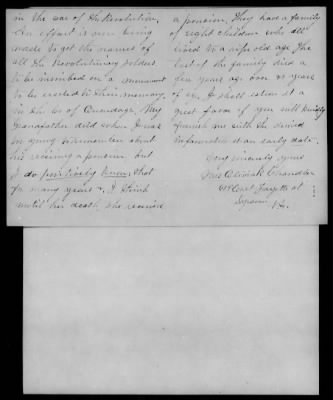 in the war of the Revolution.
An effort is now being
made to get the names of
all the Revolutionary soldiers
to be inscribed on a monument
to be erected to their memory
in the Co of Onondaga. My
Grandfather died when I was
too young to remember about
his receiving a pension but
I do positively know that
for many years &, I think
until her death, she received
a pension. They had a family
of eight children who all
lived to a ripe old age. The
last of the family died a
few years ago over 90 years
of age. I shall esteem it a
great favor if you will kindly
furnish me with the desired
information at an early date.
Very sincerely yours
Mrs Chandler
West Fayette st